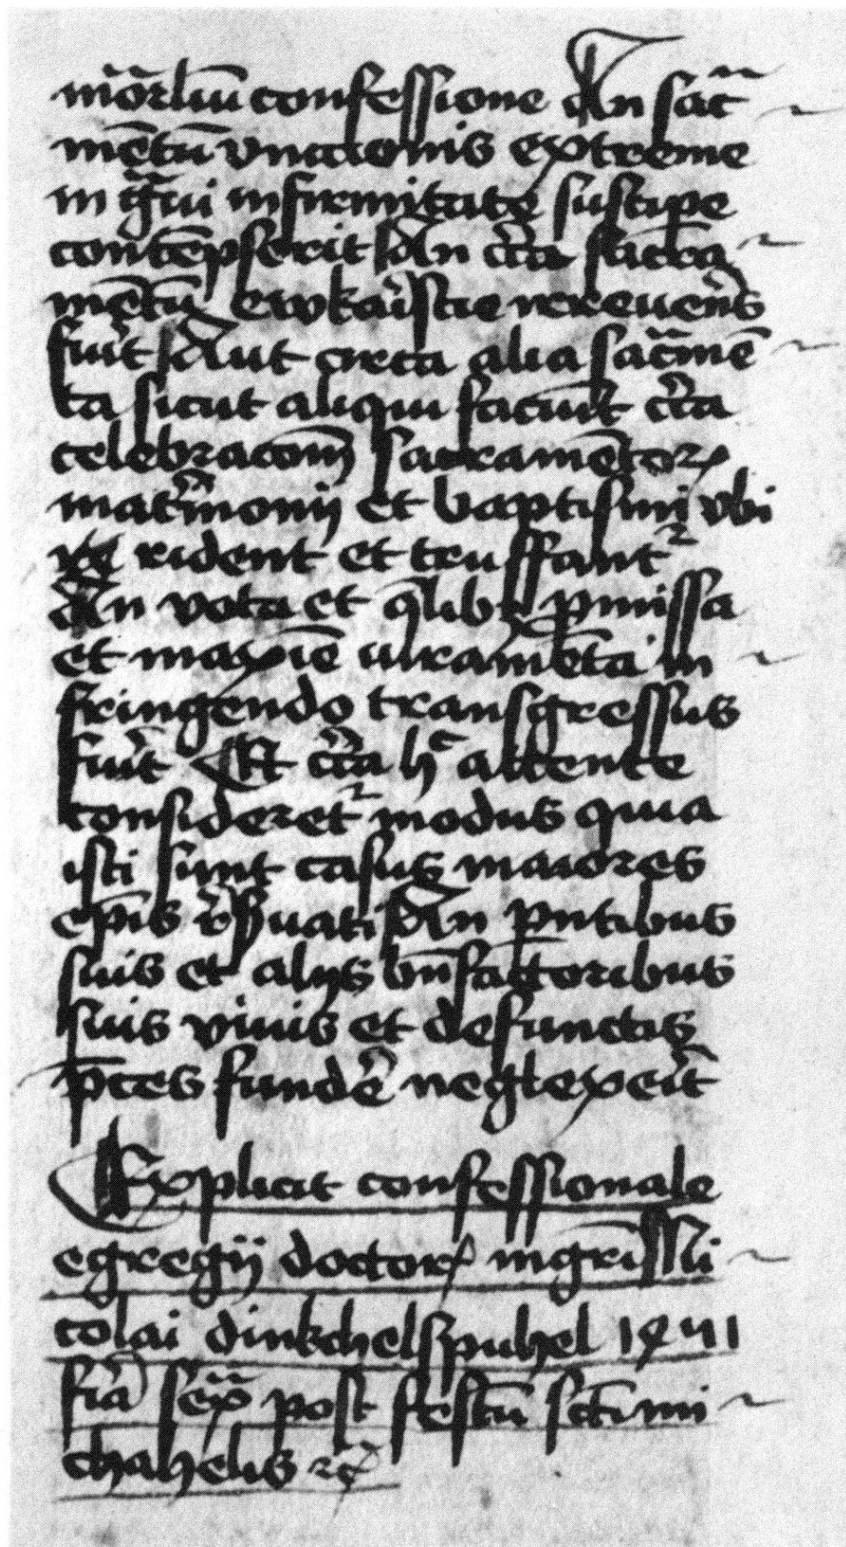 mortaliū confessione An sac̄ra
mētū vnctionis extreme
in gͣui infirmitate suscipe
contēpserit An cͥca sacra
mētū ewkaͥstie irreuerēs
fuͥt Aut circa alia sacͣmē
ta sicut aliqui faciūt cͥca
celebracōnē sacramētoꝝ
matͥmonij et baptismi vbi
rident et truffantᷣ
An vota et qͣlibꝫ pͥmissa
et maxīe iuramēta in
fringendo transgressus
fuͥt Et cͥca hͦ attente
consideretᷣ modus quia
isti sunt casus maiores
ep̄is rẜuati An pͣntibus
suis et alijs bn̄factoribus
suis viuis et defunctis
p̄ces fundē neglexeͥt
Explicit confessionale
egregij doctorꝭ mgr̄i Ni
colai dinkchelspuhel
fͥia sexͣ post festū sct̄i mi
chahelis ⁊c̄